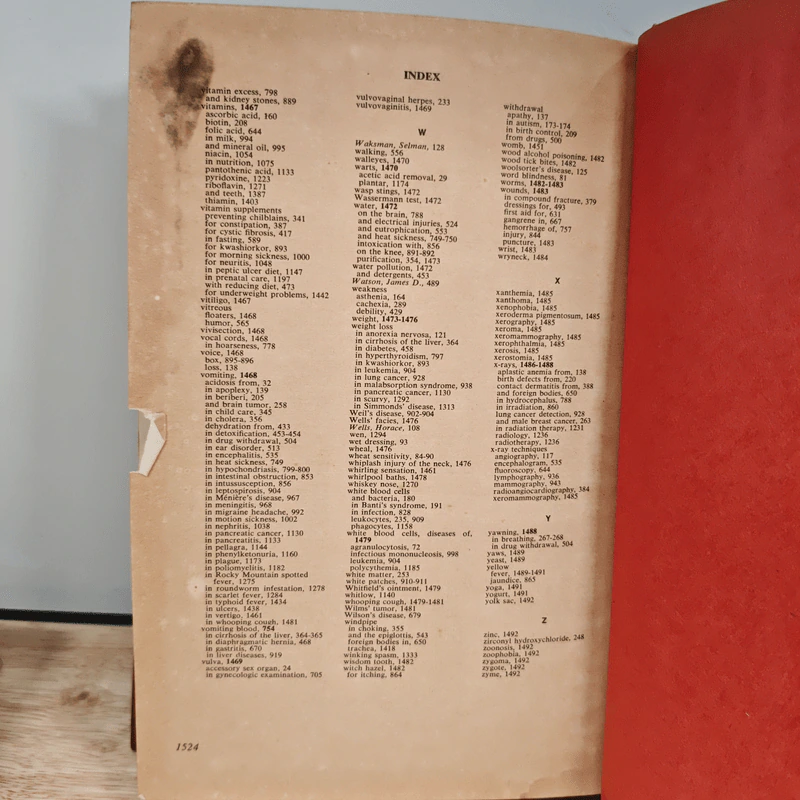 INDEX
vitamin excess, 798
and kidney stones, 889
vitamins, 1467
ascorbic acid, 160
biotin, 208
folic acid, 644
in milk, 994
and mineral oil, 995
niacin, 1054
in nutrition, 1075
pantothenic acid, 1133
pyridoxine, 1223
riboflavin, 1271
and teeth, 1387
thiamin, 1403
vitamin supplements
preventing chilblains, 341
for constipation, 387
for cystic fibrosis, 417
in fasting, 589
for kwashiorkor, 893
for morning sickness, 1000
for neuritis, 1048
in peptic ulcer diet, 1147
in prenatal care, 1197
with reducing diet, 473
for underweight problems, 1442
vitiligo, 1467
vitreous
floaters, 1468
humor, 565
vivisection, 1468
vocal cords, 1468
in hoarseness, 778
voice, 1468
box, 895-896
loss, 138
vomiting, 1468
acidosis from, 32
in apoplexy, 139
in beriberi, 205
and brain tumor, 258
in child care, 345
in cholera, 356
dehydration from, 433
in detoxification, 453-454
in drug withdrawal, 504
in ear disorder, 513
in encephalitis, 535
in heat sickness, 749
in hypochondriasis, 799-800
in intestinal obstruction, 853
in intussusception, 856
in leptospirosis, 904
in Ménière's disease, 967
in meningitis, 968
in migraine headache, 992
in motion sickness, 1002
in nephritis, 1038
in pancreatic cancer, 1130
in pancreatitis, 1133
in pellagra, 1144
in phenylketonuria, 1160
in plague, 1173
in poliomyelitis, 1182
in Rocky Mountain spotted
fever, 1275
in roundworm infestation, 1278
in scarlet fever, 1284
in typhoid fever, 1434
in ulcers, 1438
in vertigo, 1461
in whooping cough, 1481
vomiting blood, 754
in cirrhosis of the liver, 364-365
in diaphragmatic hernia, 468
in gastritis, 670
in liver diseases, 919
vulva, 1469
accessory sex organ, 24
in gynecologic examination, 705
vulvovaginal herpes, 233
vulvovaginitis, 1469
W
Waksman, Selman, 128
walking, 556
walleyes, 1470
warts, 1470
acetic acid removal, 29
plantar, 1174
wasp stings, 1472
Wassermann test, 1472
water, 1472
on the brain, 788
and electrical injuries, 524
and eutrophication, 553
and heat sickness, 749-750
intoxication with, 856
on the knee, 891-892
purification, 354, 1473
water pollution, 1472
and detergents, 453
Watson, James D., 489
weakness
asthenia, 164
cachexia, 289
debility, 429
weight, 1473-1476
weight loss
in anorexia nervosa, 121
in cirrhosis of the liver, 364
in diabetes, 458
in hyperthyroidism, 797
in kwashiorkor, 893
in leukemia, 904
in lung cancer, 928
in malabsorption syndrome, 938
in pancreatic cancer, 1130
in scurvy, 1292
in Simmonds' disease, 1313
Weil's disease, 902-904
Wells' facies, 1476
Wells, Horace, 108
wen, 1294
wet dressing, 93
wheal, 1476
wheat sensitivity, 84-90
whiplash injury of the neck, 1476
whirling sensation, 1461
whirlpool baths, 1478
whiskey nose, 1270
white blood cells
and bacteria, 180
in Banti's syndrome, 191
in infection, 828
leukocytes, 235, 909
phagocytes, 1158
white blood cells, diseases of,
1479
agranulocytosis, 72
infectious mononucleosis, 998
leukemia, 904
polycythemia, 1185
white matter, 253
white patches, 910-911
Whitfield's ointment, 1479
whitlow, 1140
whooping cough, 1479-1481
Wilms' tumor, 1481
Wilson's disease, 679
windpipe
in choking, 355
and the epiglottis, 543
foreign bodies in, 650
trachea, 1418
winking spasm, 1333
wisdom tooth, 1482
witch hazel, 1482
for itching, 864
withdrawal
apathy, 137
in autism, 173-174
in birth control, 209
from drugs, 500
womb, 1451
wood alcohol poisoning, 1482
wood tick bites, 1482
woolsorter's disease, 125
word blindness, 81
worms, 1482-1483
wounds, 1483
in compound fracture, 379
dressings for, 493
first aid for, 631
gangrene in, 667
hemorrhage of, 757
injury, 844
puncture, 1483
wrist, 1483
wryneck, 1484
X
xanthemia, 1485
xanthoma, 1485
xenophobia, 1485
xeroderma pigmentosum, 1485
xerography, 1485
xeroma, 1485
xeromammography, 1485
xerophthalmia, 1485
xerosis, 1485
xerostomia, 1485
x-rays, 1486-1488
aplastic anemia from, 138
birth defects from, 220
contact dermatitis from, 388
and foreign bodies, 650
in hydrocephalus, 788
in irradiation, 860
lung cancer detection, 928
and male breast cancer, 263
in radiation therapy, 1231
radiology, 1236
radiotherapy, 1236
x-ray techniques
angiography, 117
encephalogram, 535
fluoroscopy, 644
lymphography, 936
mammography, 943
radioangiocardiography, 384
xeromammography, 1485
Y
yawning, 1488
in breathing, 267-268
in drug withdrawal, 504
yaws, 1489
yeast, 1489
yellow
fever, 1489-1491
jaundice, 865
yoga, 1491
yogurt, 1491
yolk sac, 1492
Z
zinc, 1492
zirconyl hydroxychloride, 248
zoonosis, 1492
zoophobia, 1492
zygoma, 1492
zygote, 1492
zyme, 1492
1524